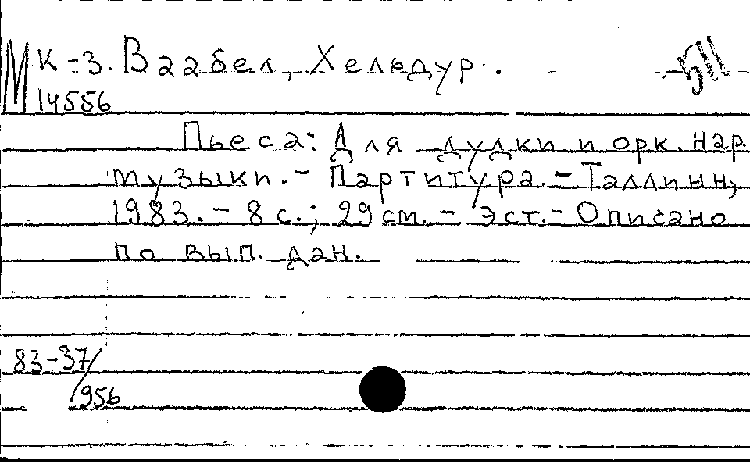 М К-3. Ваабел, Хельдур. БП
14556
Пьеса: Для дудки и орк. нар
музыки. - Партитура. - Таллинн,
1983. - 8 с.; 29 см. - Эст. - Описано
по вып. дан.
83-37/
956